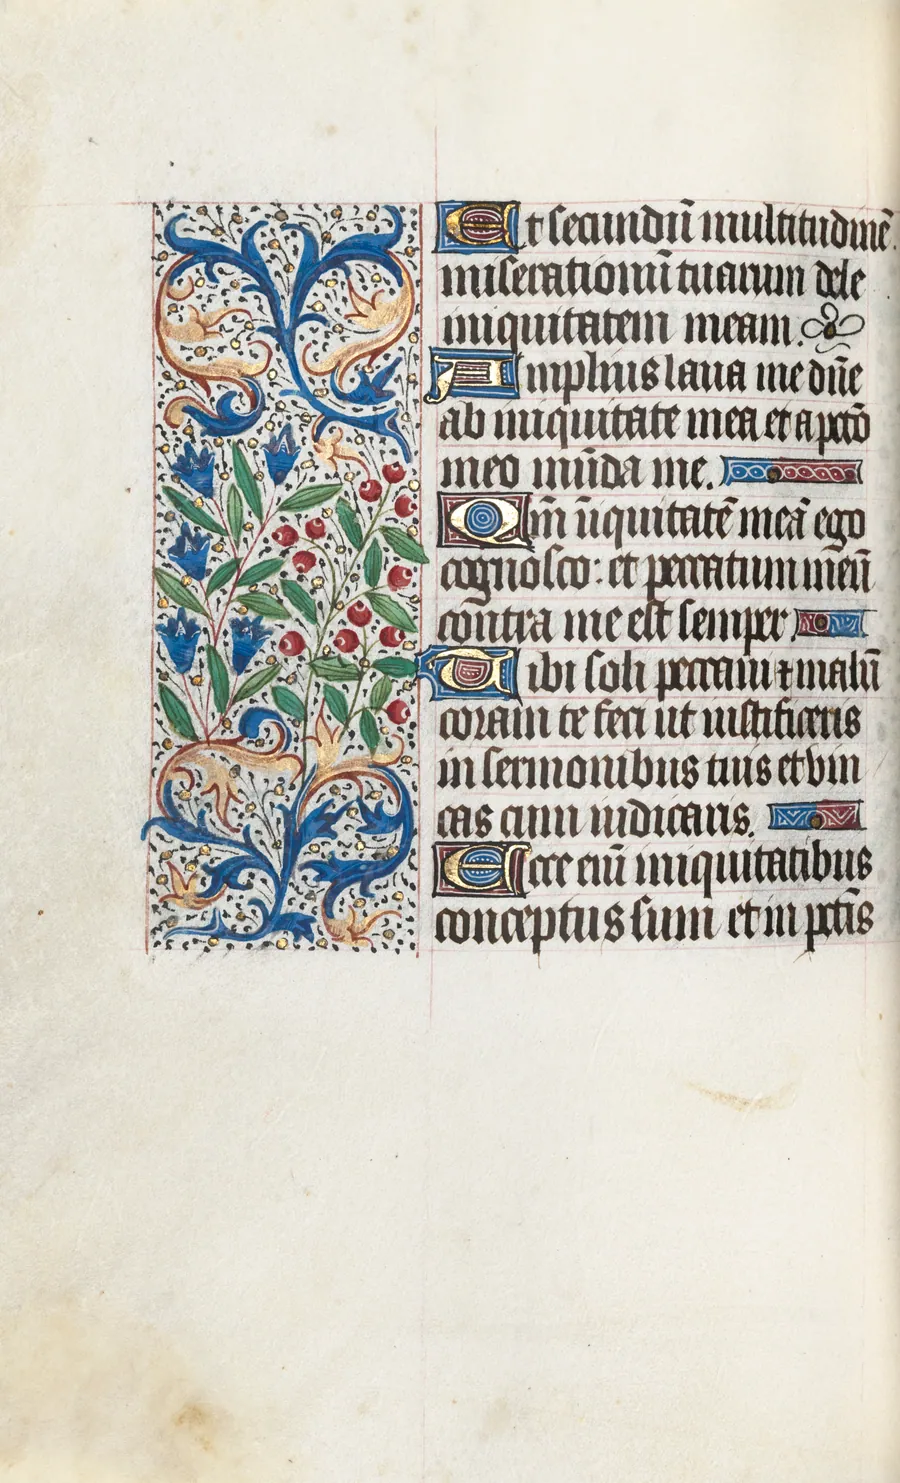 Et secundū multitudinē.
miserationū tuarum dele
iniquitatem meam.
Amplius laua me dn̄e
ab iniquitate mea et a pctō
meo mūda me.
Qm̄ īiquitatē meā ego
cognosco: et peccatum meū
contra me est semper
Tibi soli peccaui ⁊ malū
coram te feci ut iustificeris
in sermonibus tuis et vin
cas cum iudicaris.
Ecce eiū iniquitatibus
conceptus sum et in pctīs